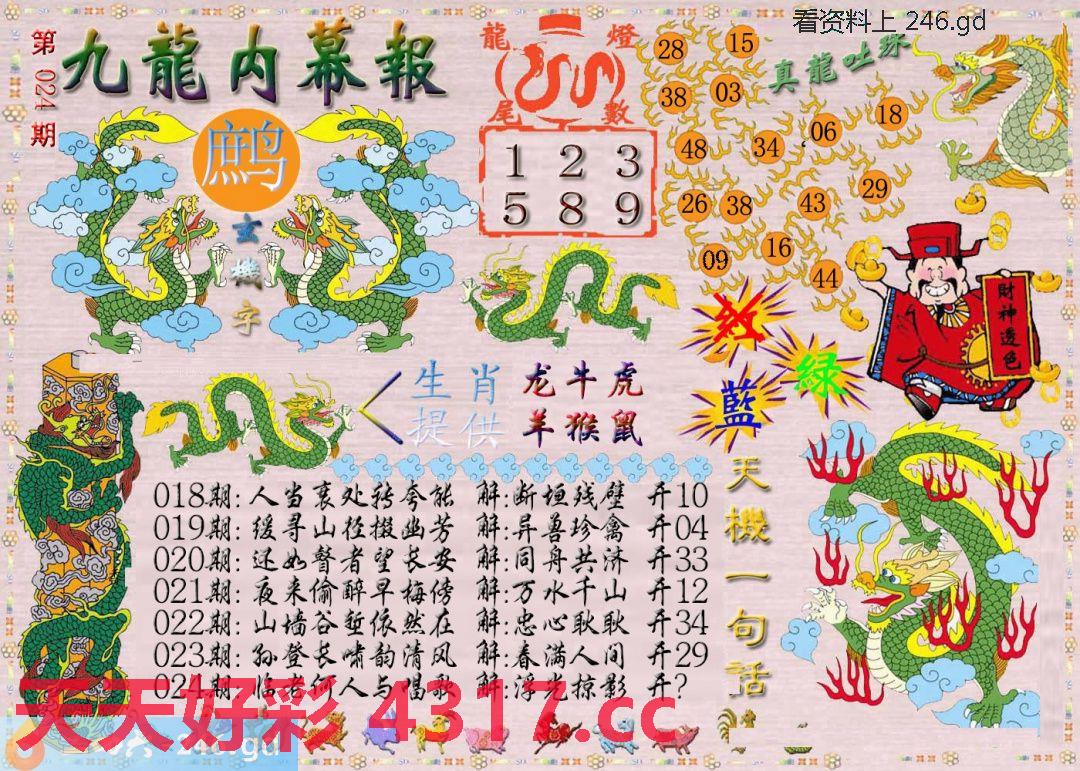 看资料上 246.gd
第024期
九龍内幕報
鹧
玄機字
龍燈
尾數
1 2 3
5 8 9
真龍吐珠
28
15
38
03
18
06
48
34
29
26
38
43
16
09
44
紅
綠
藍
財神透色
生肖
提供
龙牛虎
羊猴鼠
018期:人当衰处转夸能 解:断垣残壁 开10
019期:缓寻山径掇幽芳 解:异兽珍禽 开04
020期:还如瞽者望长安 解:同舟共济 开33
021期:夜来偷醉早梅傍 解:万水千山 开12
022期:山墙谷堑依然在 解:忠心耿耿 开34
023期:孙登长啸韵清风 解:春满人间 开29
024期:临岩何人与唱歌 解:浮光掠影 开?
天機一句话
天天好彩 4317.cc
246.gd